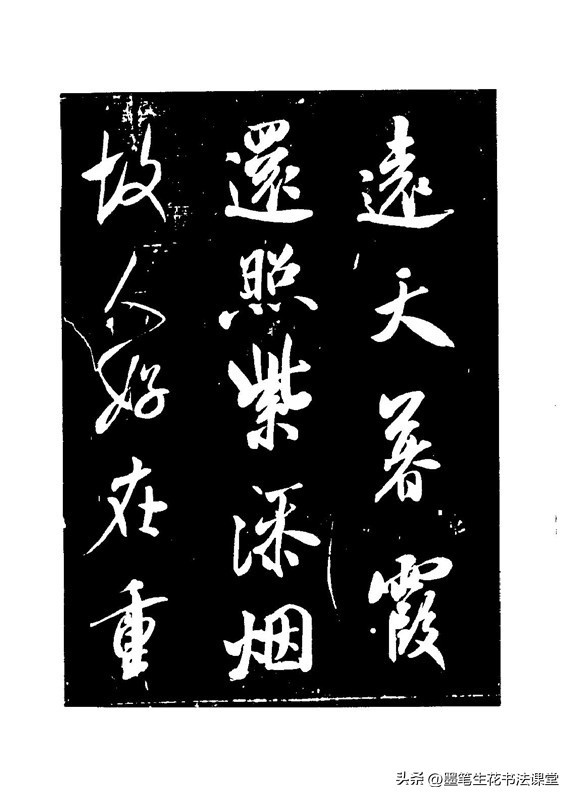 遠天暮霞
還照紫深烟
故人好在重
头条@墨笔生花书法课堂